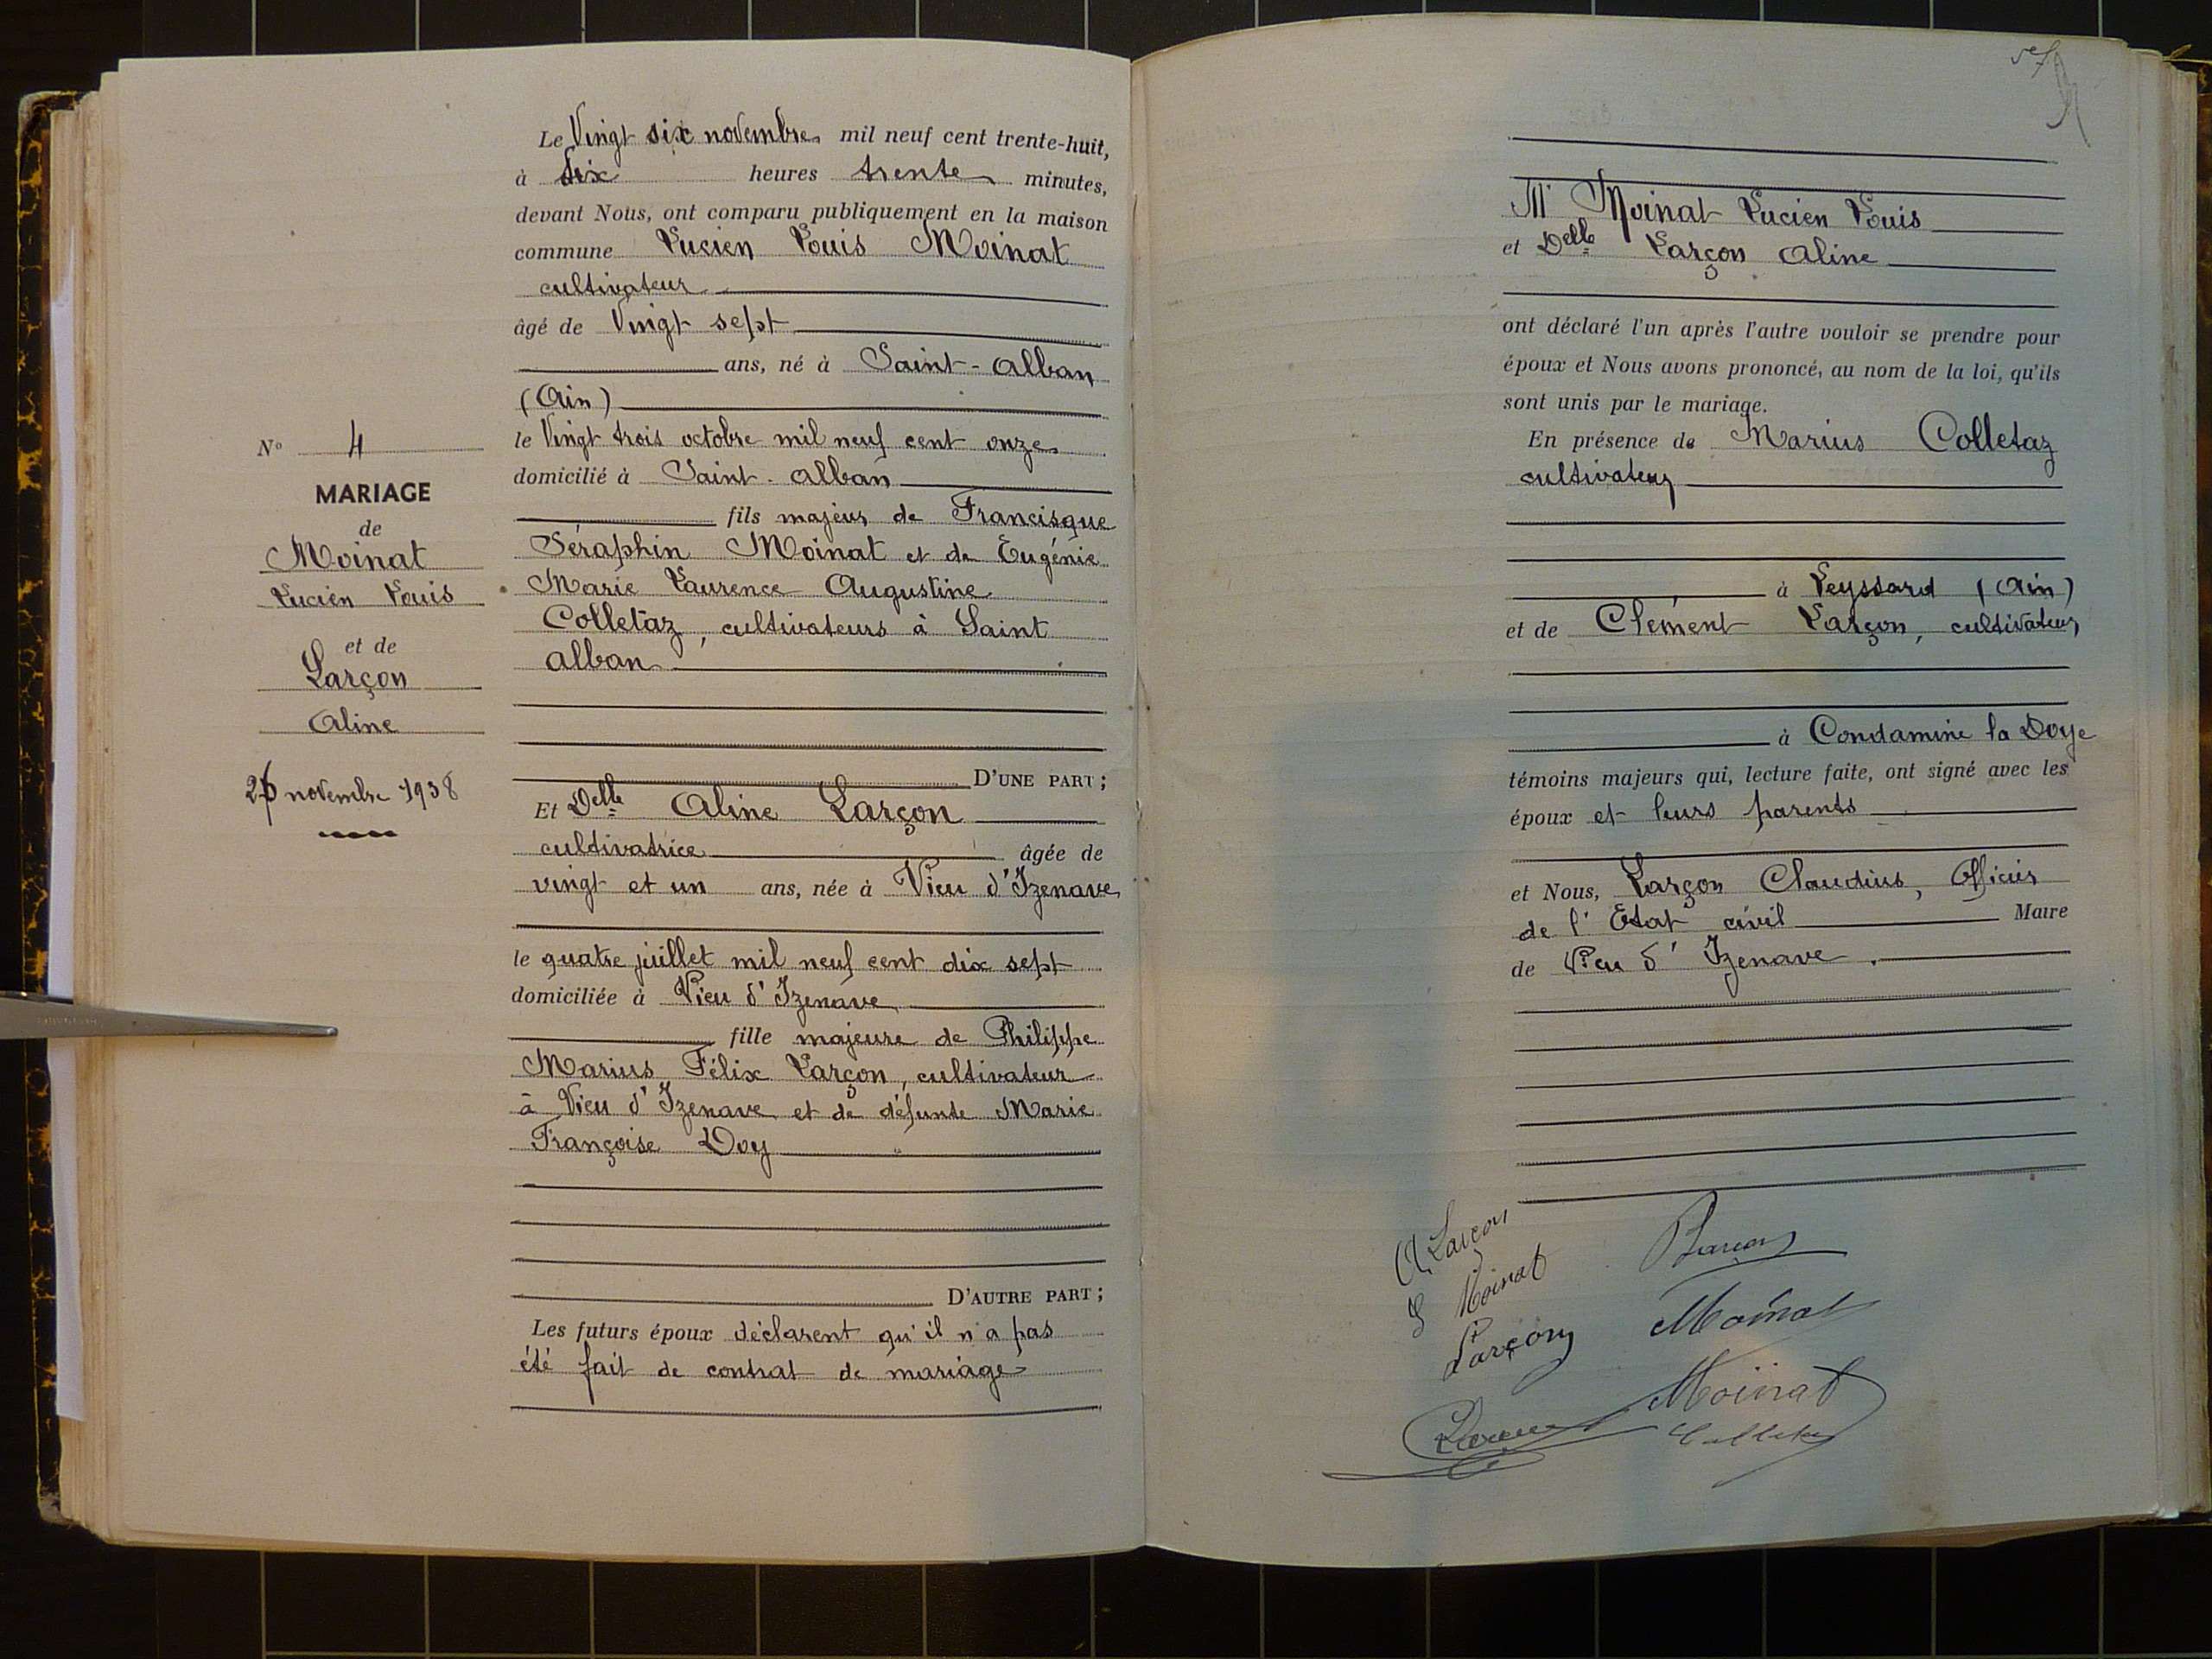 N° 4
MARIAGE
de
Moinat
Lucien Louis
et de
Larçon
Aline
26 novembre 1938
Le Vingt six novembre mil neuf cent trente-huit,
à dix heures trente minutes,
devant Nous, ont comparu publiquement en la maison
commune Lucien Louis Moinat
cultivateur
âgé de Vingt sept
ans, né à Saint-Alban
(Ain)
le Vingt trois octobre mil neuf cent onze
domicilié à Saint-Alban
fils majeur de Francisque
Séraphin Moinat et de Eugénie
Marie Laurence Augustine
Colletaz, cultivateurs à Saint
Alban
D'UNE PART ;
Et Delle Aline Larçon
cultivatrice âgée de
vingt et un ans, née à Vieu d'Izenave
le quatre juillet mil neuf cent dix sept
domiciliée à Vieu d'Izenave
fille majeure de Philippe
Marius Félix Larçon, cultivateur
à Vieu d'Izenave et de défunte Marie
Françoise Doy
D'AUTRE PART ;
Les futurs époux déclarent qu'il n'a pas
été fait de contrat de mariage
Mr Moinat Lucien Louis
et Delle Larçon Aline
ont déclaré l'un après l'autre vouloir se prendre pour
époux et Nous avons prononcé, au nom de la loi, qu'ils
sont unis par le mariage.
En présence de Marius Colletaz
cultivateur
à Leyssard (Ain)
et de Clément Larçon, cultivateur
à Condamine la Doye
témoins majeurs qui, lecture faite, ont signé avec les
époux et leurs parents
et Nous, Larçon Claudius, Officier
de l'Etat civil Maire
de Vieu d'Izenave.
A Larçon
Moinat
Larçon
Moinat
Moinat
Colletaz